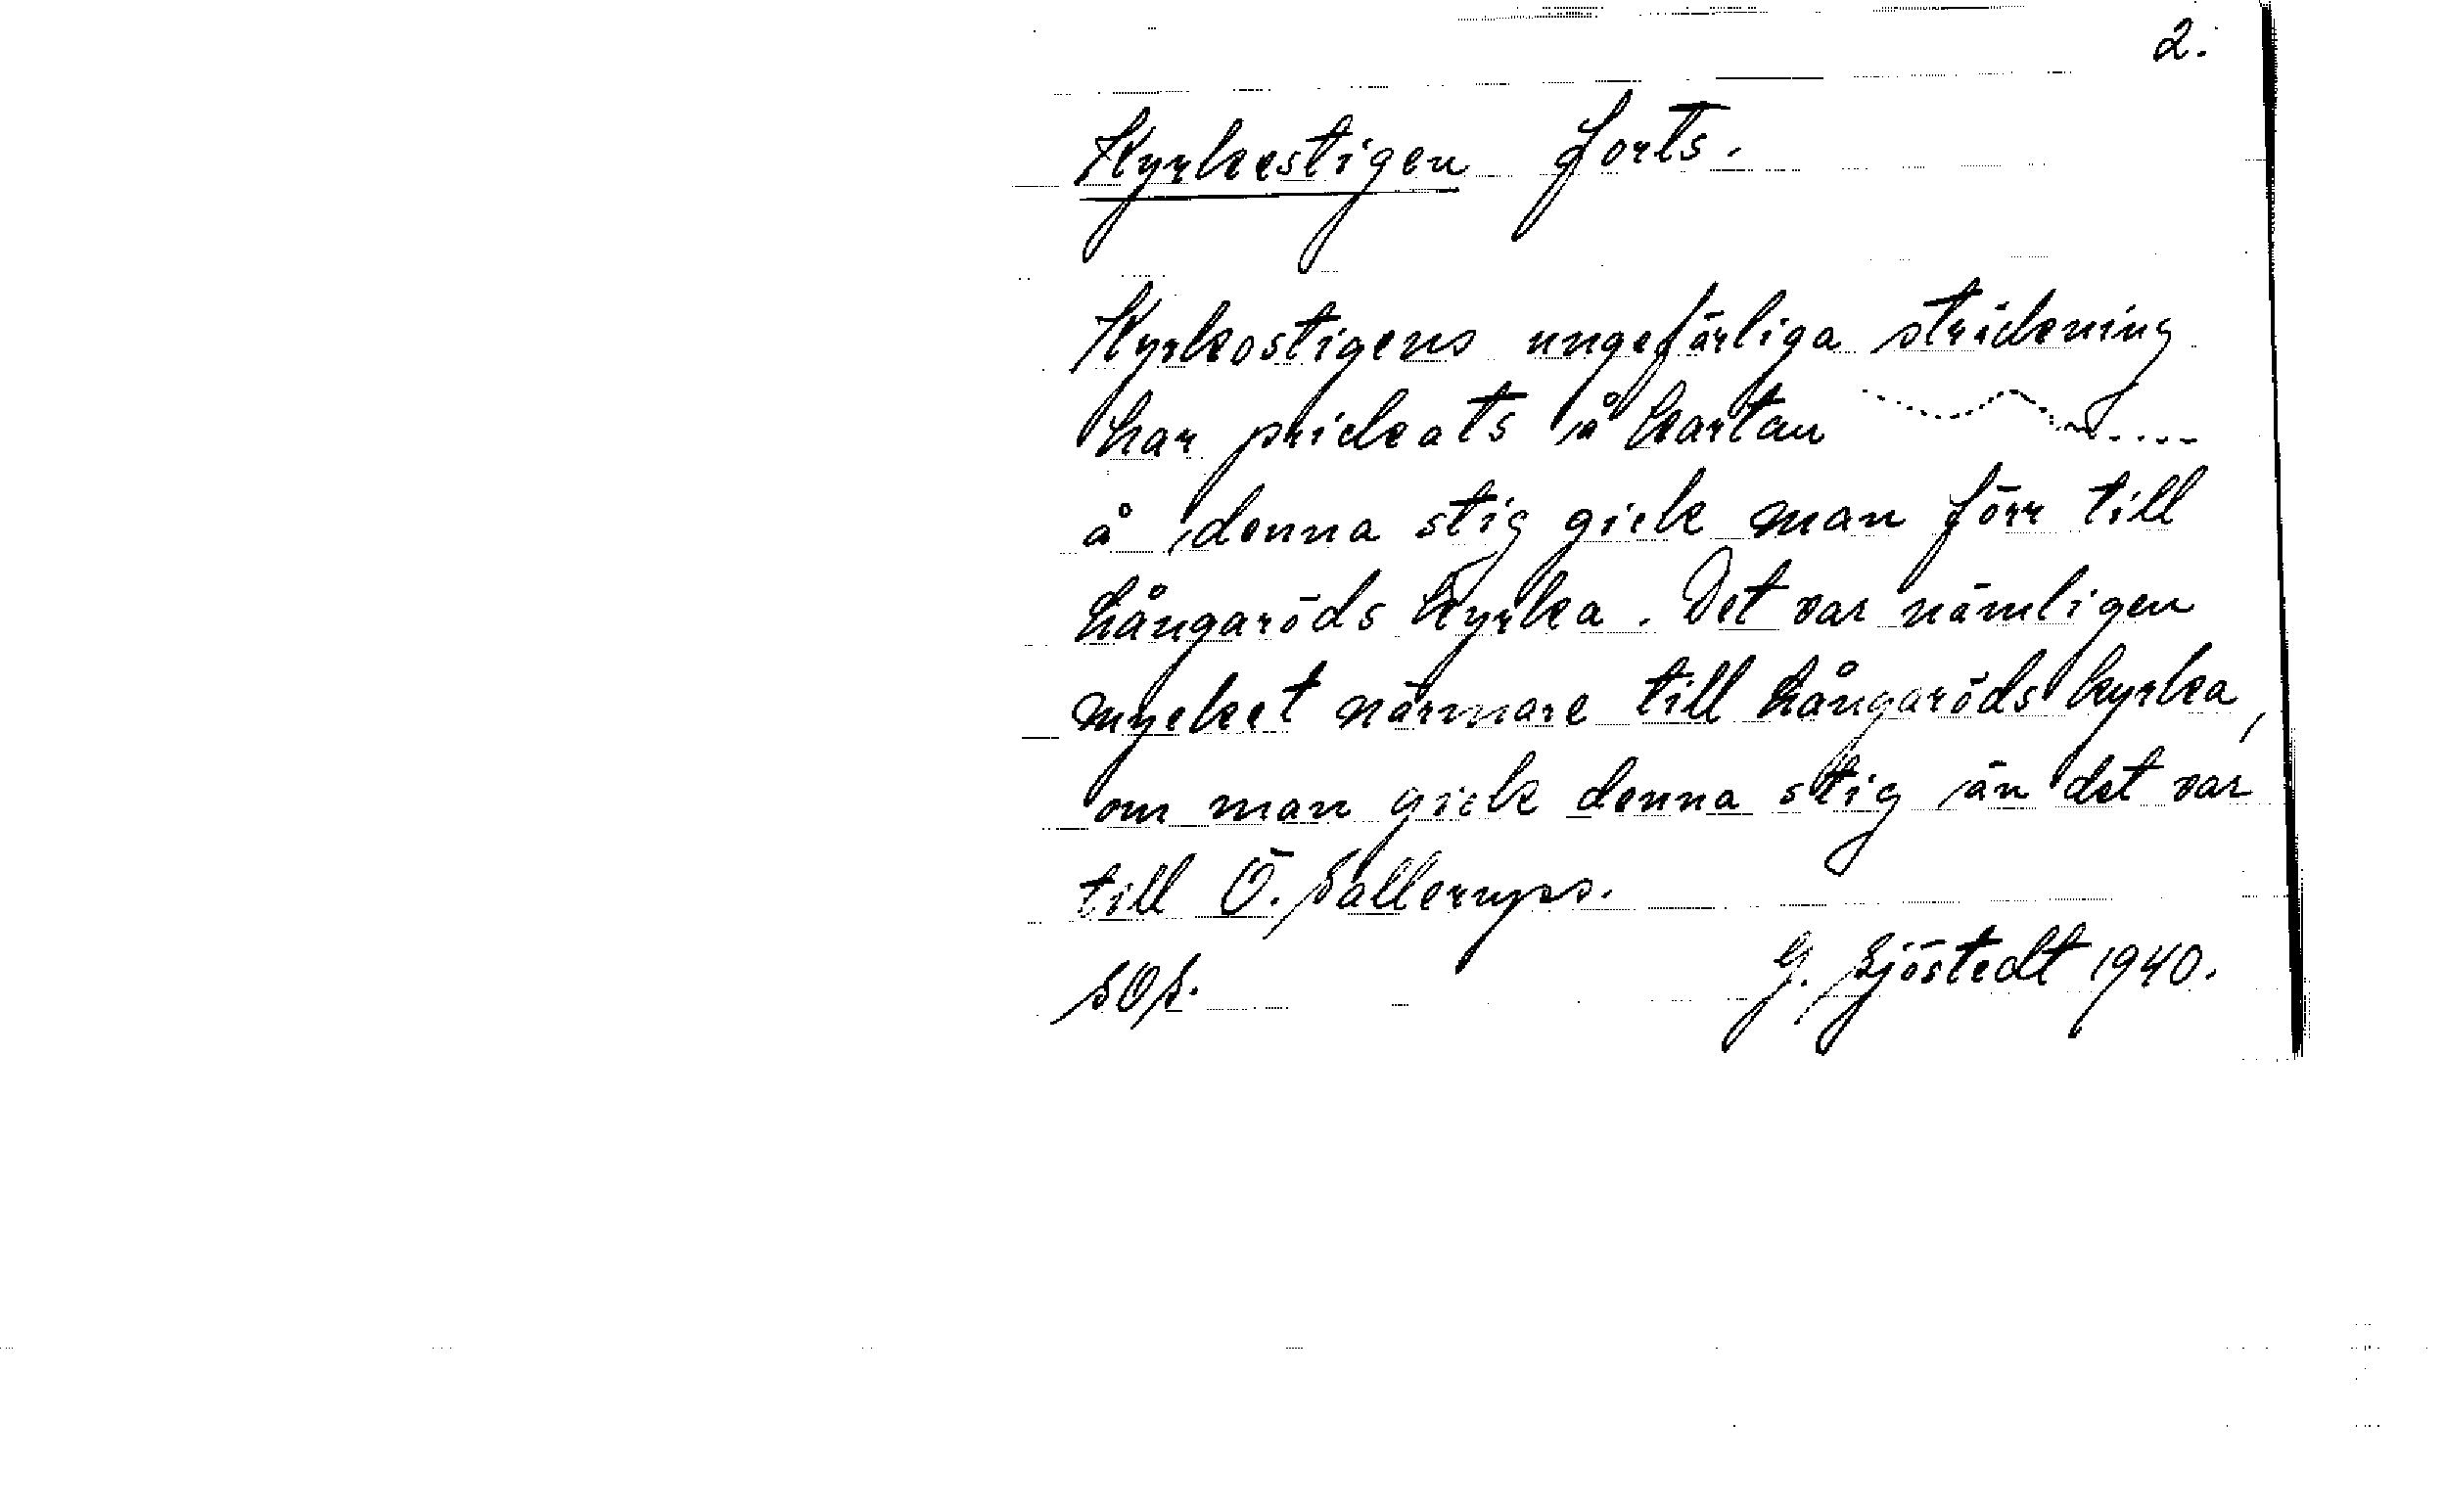 2.
Kyrkestigen forts.
Kyrkostigens ungefärliga sträckning
har prickats å kartan
å denna stig gick man förr till
Långaröds kyrka. Det var nämligen
mycket närmare till Långaröds kyrka,
om man gick denna stig än det var
till Ö. Sallerups.
SOS.
G. Sjöstedt 1940.